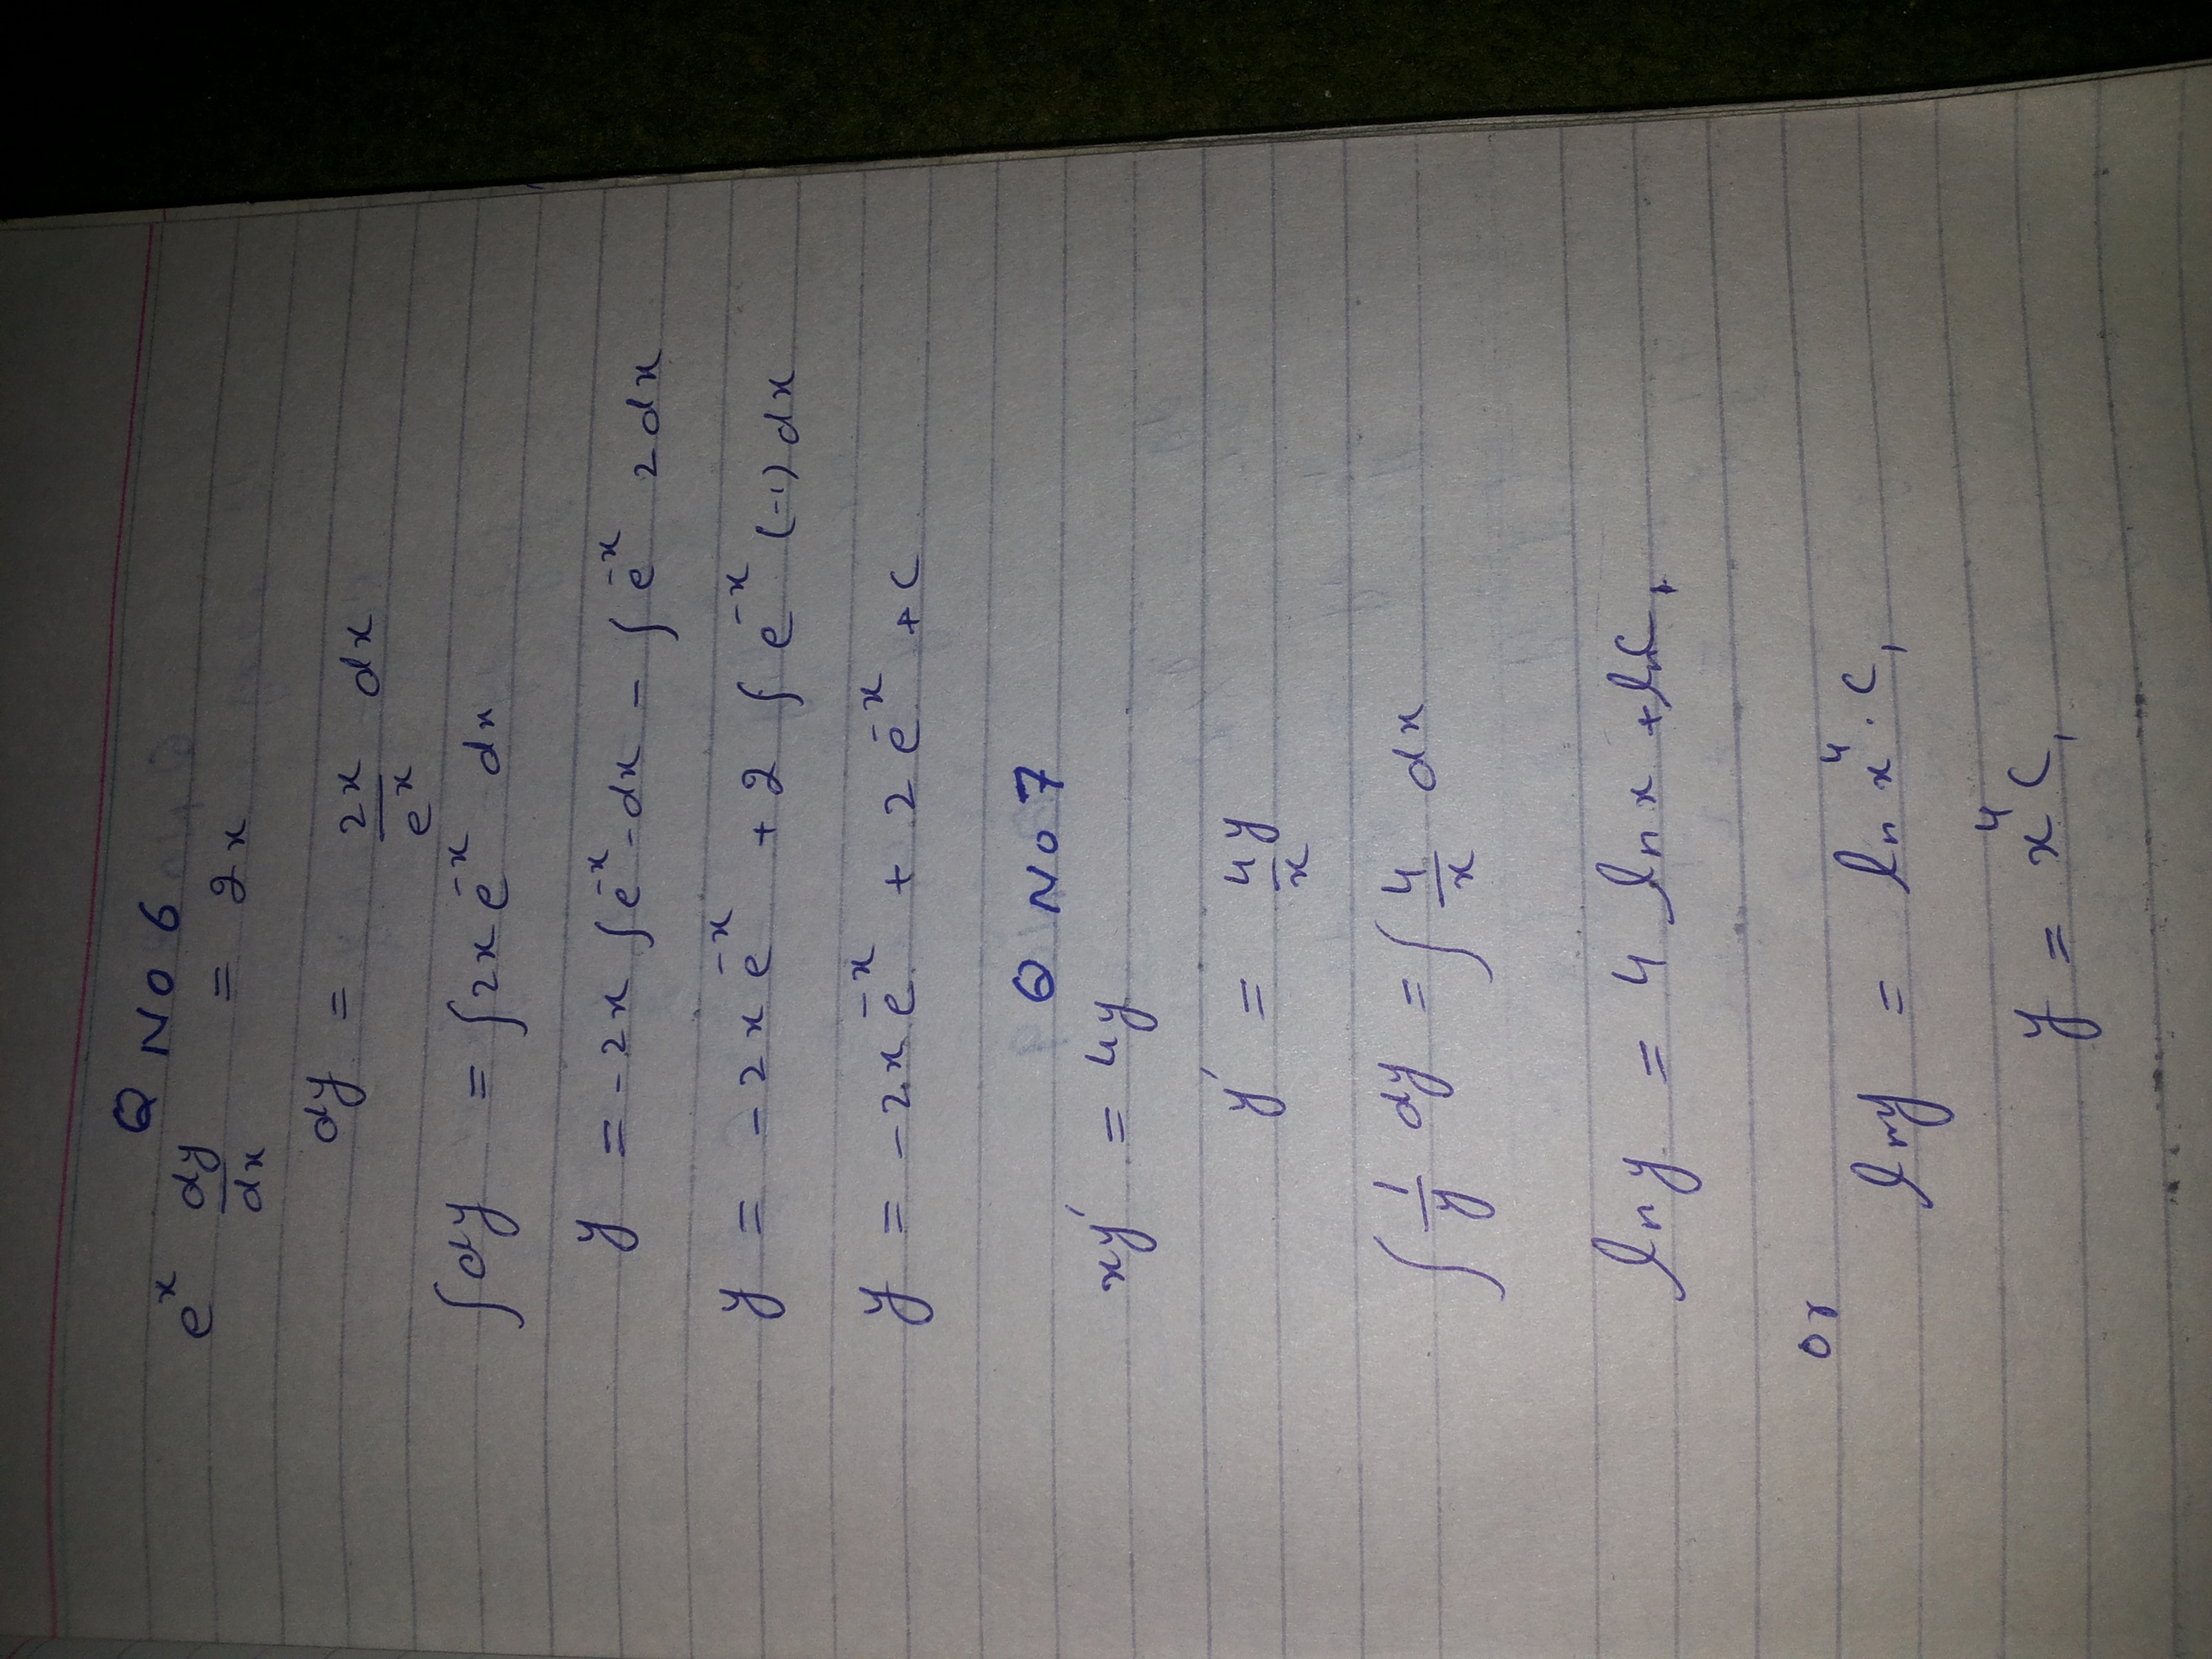 Q No 6
e^x dy/dx = 2x
dy = 2x/e^x dx
∫dy = ∫2x e^-x dx
y = -2x ∫e^-x -dx - ∫e^-x 2dx
y = -2x e^-x + 2 ∫e^-x (-1) dx
y = -2x e^-x + 2 e^-x + c
Q No 7
xy' = 4y
y' = 4y/x
∫ 1/y dy = ∫ 4/x dx
ln y = 4 ln x + ln C₁
or
ln y = ln x^4 . C₁
y = x^4 C₁